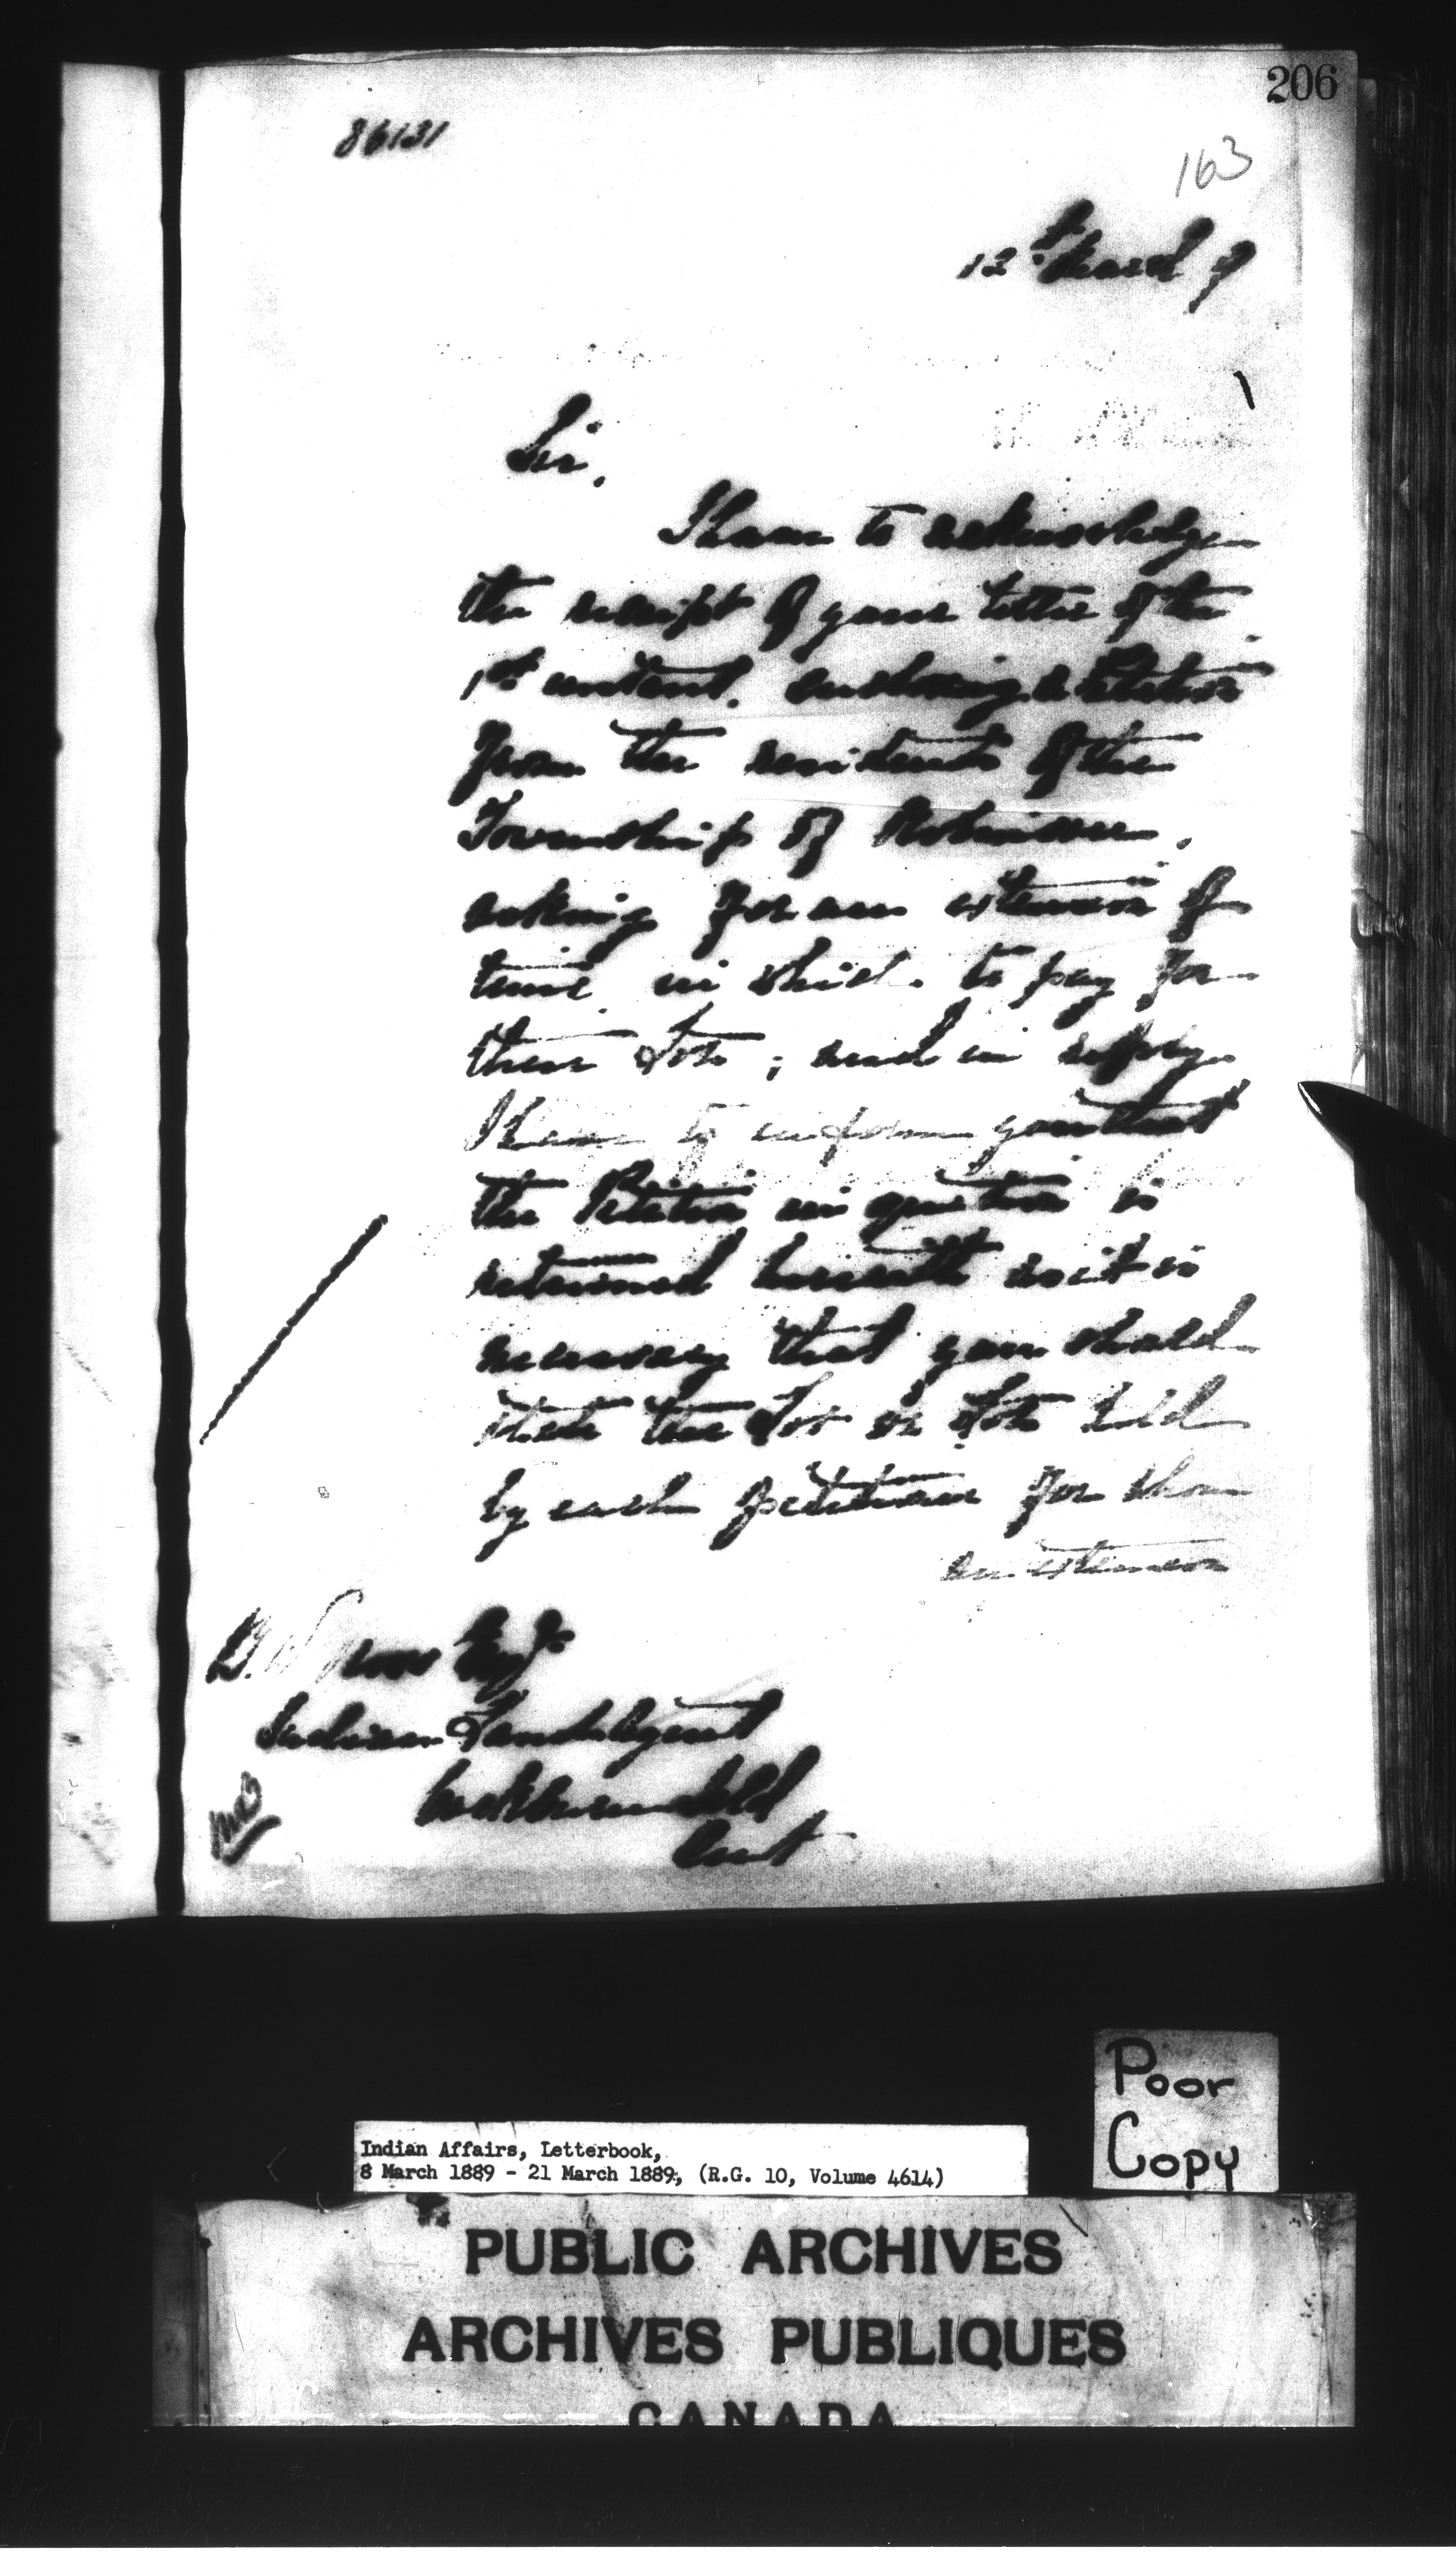 206
86131
163
12th March 9
Sir,
I have to acknowledge
the receipt of your letter of the
1st instant, enclosing a Petition
from the residents of the
Township of Robinson,
asking for an extension of
time in which to pay for
their Lots; and in reply
I have to inform you that
the Petition in question is
returned herewith as it is
necessary that you should
state the Lot or Lots held
by each petitioner for whom
an extension
B. W. Ross Esqr
Indian Land Agent
Cockburn Isld
Ont
Poor
Copy
Indian Affairs, Letterbook,
8 March 1889 - 21 March 1889, (R.G. 10, Volume 4614)
PUBLIC ARCHIVES
ARCHIVES PUBLIQUES
CANADA